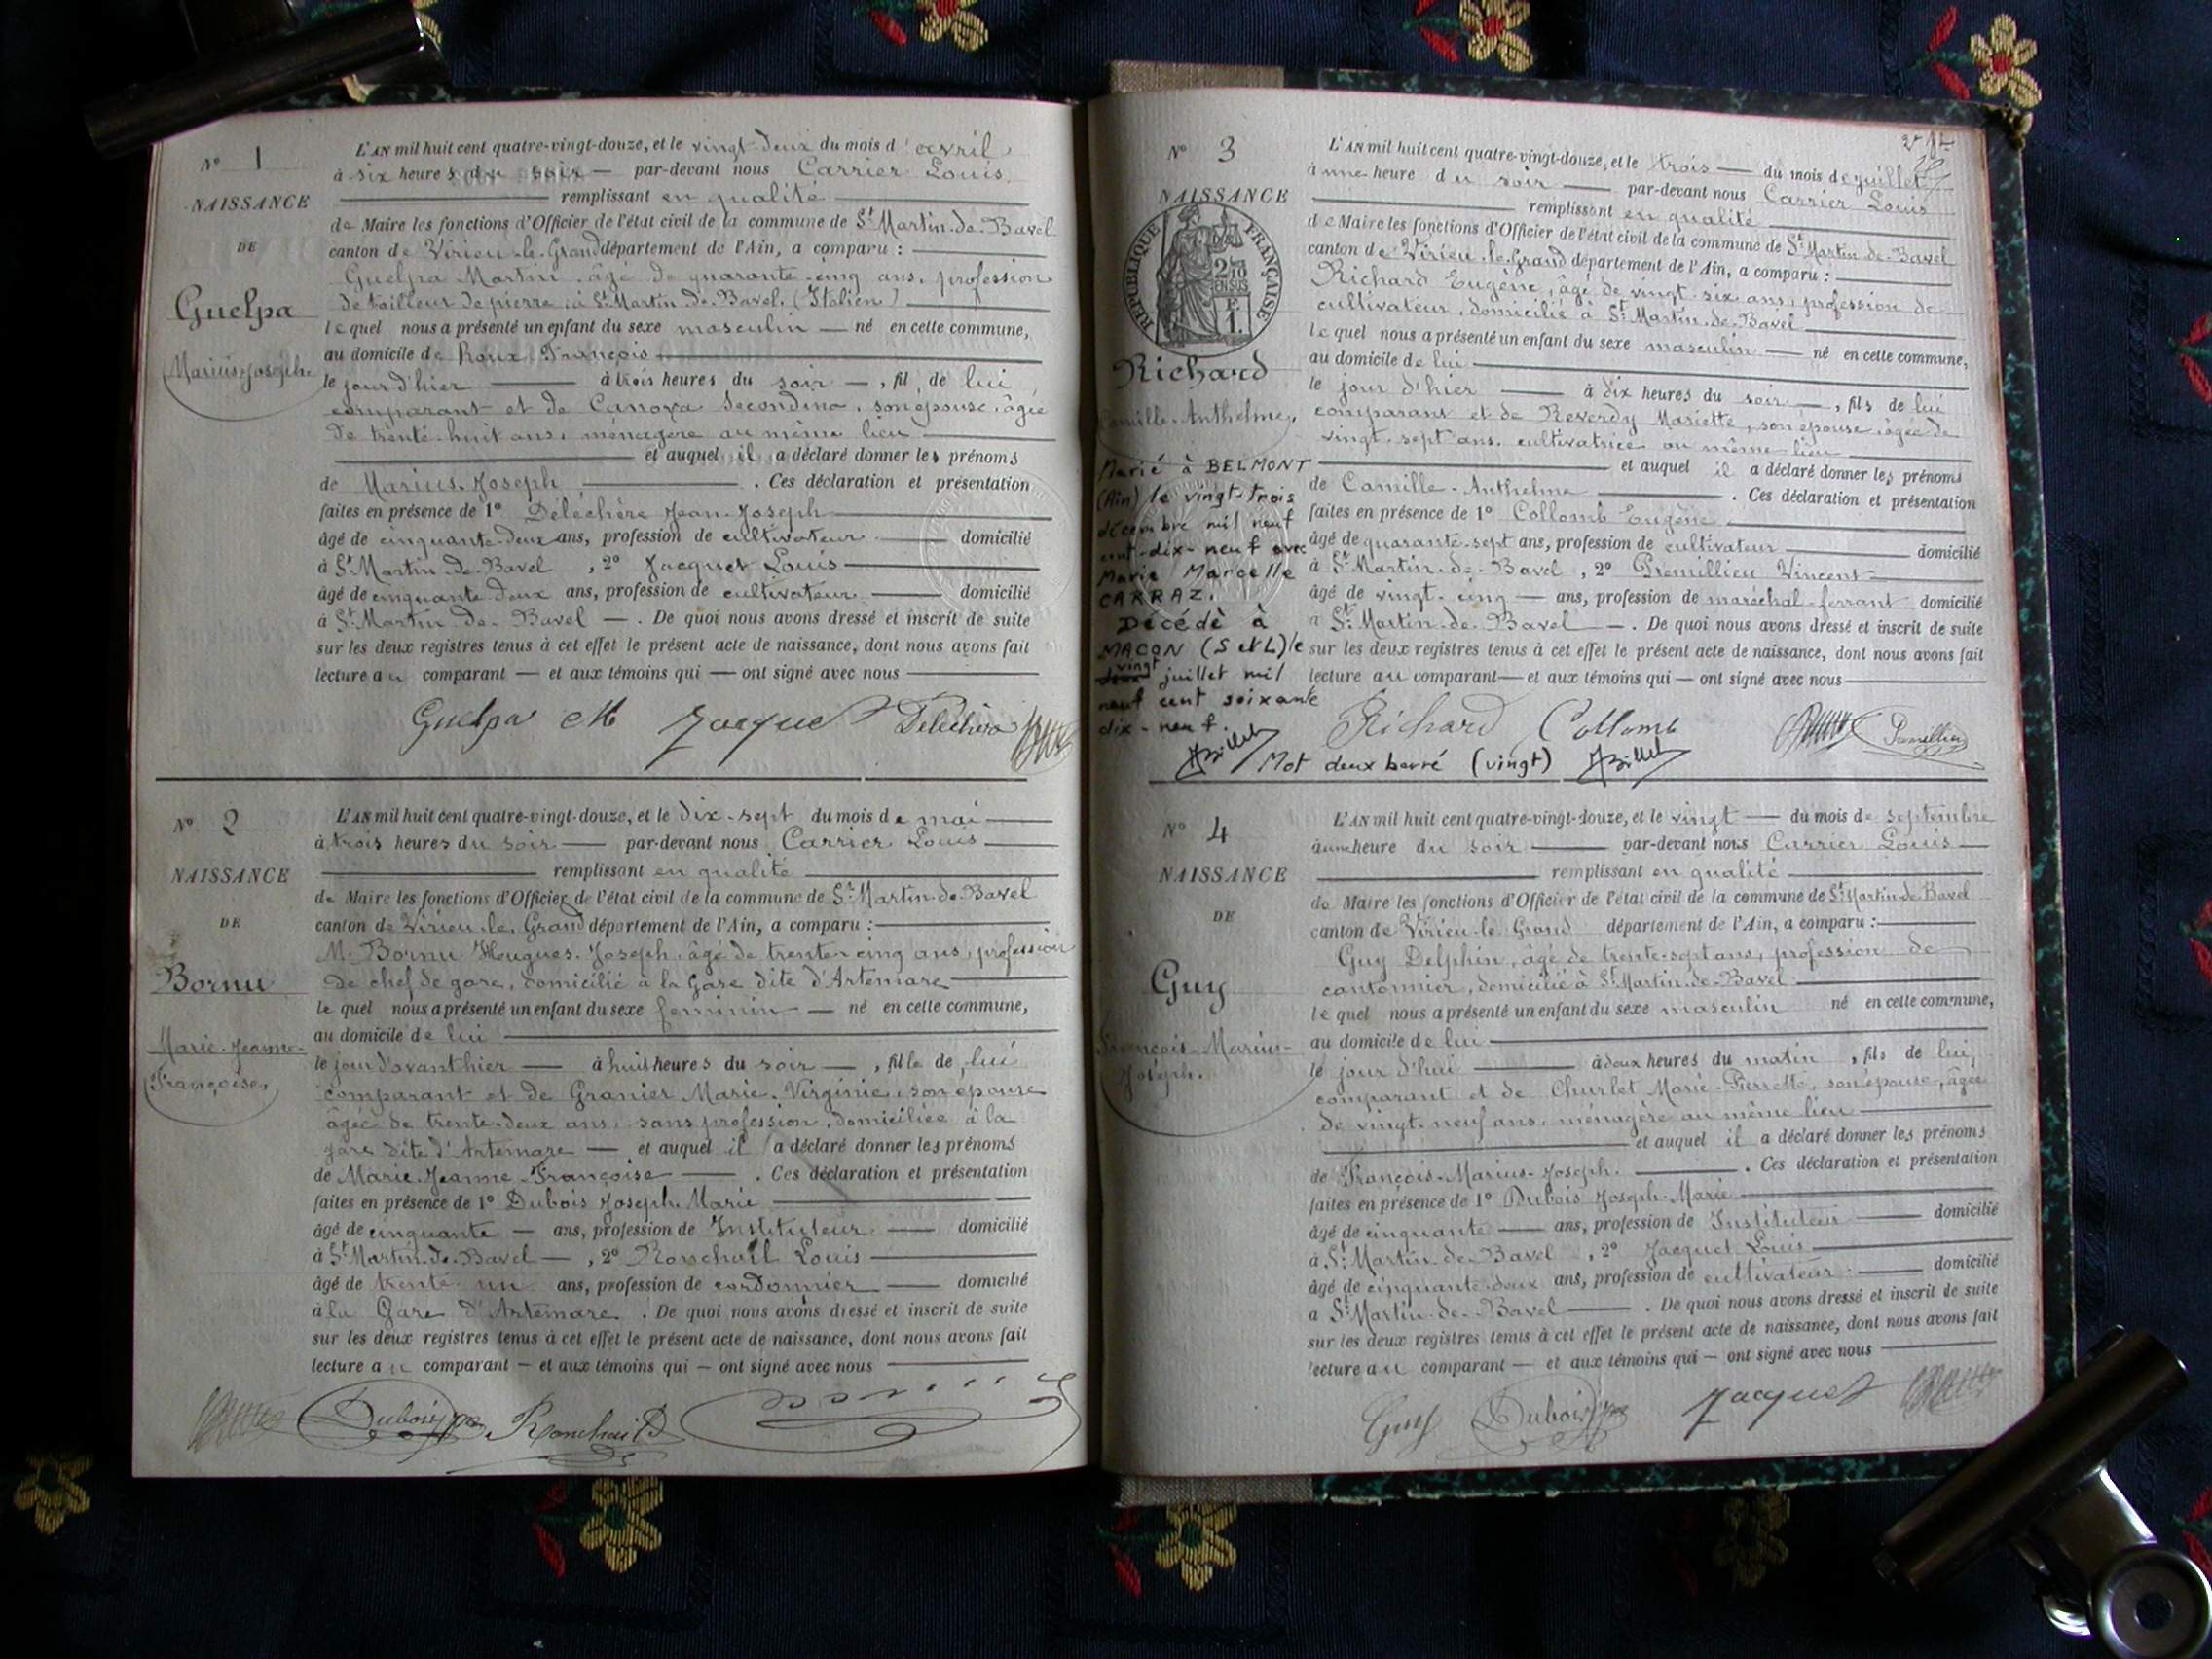 N° 1
NAISSANCE
DE
Guelpa
Marius-Joseph
L'AN mil huit cent quatre-vingt-douze, et le vingt-deux du mois d'avril
à six heures du soir — par-devant nous Carrier Louis
remplissant en qualité
de Maire les fonctions d'Officier de l'état civil de la commune de St Martin-de-Bavel
canton de Virieu-le-Grand département de l'Ain, a comparu :
Guelpa Martin, âgé de quarante-cinq ans, profession
de tailleur de pierre, à St Martin-de-Bavel. (Italien)
lequel nous a présenté un enfant du sexe masculin — né en cette commune,
au domicile de Roux François
le jour d'hier — à trois heures du soir —, fil de lui
comparant et de Canova Secondina, son épouse, âgée
de trente-huit ans, ménagère au même lieu
et auquel il a déclaré donner les prénoms
de Marius-Joseph — . Ces déclaration et présentation
faites en présence de 1° Déléchère Jean-Joseph
âgé de cinquante-deux ans, profession de cultivateur — domicilié
à St Martin-de-Bavel , 2° Jacquet Louis
âgé de cinquante-deux ans, profession de cultivateur — domicilié
à St Martin-de-Bavel — . De quoi nous avons dressé et inscrit de suite
sur les deux registres tenus à cet effet le présent acte de naissance, dont nous avons fait
lecture au comparant — et aux témoins qui — ont signé avec nous
Guelpa M Jacquet Déléchère
N° 2
NAISSANCE
DE
Bornu
Marie-Jeanne-
Françoise,
L'AN mil huit cent quatre-vingt-douze, et le dix-sept du mois de mai
à trois heures du soir — par-devant nous Carrier Louis
remplissant en qualité
de Maire les fonctions d'Officier de l'état civil de la commune de St Martin-de-Bavel
canton de Virieu-le-Grand département de l'Ain, a comparu :
M. Bornu Hugues-Joseph, âgé de trente-cinq ans, profession
de chef de gare, domicilié à la Gare dite d'Artemare
lequel nous a présenté un enfant du sexe féminin — né en cette commune,
au domicile de lui
le jour d'avant hier — à huit heures du soir —, fille de lui
comparant et de Granier Marie-Virginie, son épouse
âgée de trente-deux ans, sans profession, domiciliée à la
gare dite d'Artemare — et auquel il a déclaré donner les prénoms
de Marie-Jeanne-Françoise — . Ces déclaration et présentation
faites en présence de 1° Dubois Joseph-Marie
âgé de cinquante — ans, profession de Instituteur — domicilié
à St Martin-de-Bavel — , 2° Ronchail Louis
âgé de trente-un ans, profession de cordonnier — domicilié
à la Gare d'Artemare . De quoi nous avons dressé et inscrit de suite
sur les deux registres tenus à cet effet le présent acte de naissance, dont nous avons fait
lecture au comparant — et aux témoins qui — ont signé avec nous
Dubois Ronchail
N° 3
NAISSANCE
RÉPUBLIQUE FRANÇAISE
Richard
Camille-Anthelme,
Marié à BELMONT
(Ain) le vingt-trois
décembre mil neuf
cent-dix-neuf avec
Marie Marcelle
CARRAZ.
Décédé à
MACON (S et L) le
vingt
deux juillet mil
neuf cent soixante
dix-neuf.
Mot deux barré (vingt)
L'AN mil huit cent quatre-vingt-douze, et le trois — du mois de juillet
à une heure du soir — par-devant nous Carrier Louis
remplissant en qualité
de Maire les fonctions d'Officier de l'état civil de la commune de St Martin-de-Bavel
canton de Virieu-le-Grand département de l'Ain, a comparu :
Richard Eugène, âgé de vingt-six ans, profession de
cultivateur, domicilié à St Martin-de-Bavel
lequel nous a présenté un enfant du sexe masculin — né en cette commune,
au domicile de lui
le jour d'hier — à dix heures du soir —, fils de lui
comparant et de Reverdy Mariette, son épouse, âgée de
vingt-sept ans, cultivatrice au même lieu
et auquel il a déclaré donner les prénoms
de Camille-Anthelme — . Ces déclaration et présentation
faites en présence de 1° Collomb Eugène
âgé de quarante-sept ans, profession de cultivateur — domicilié
à St Martin-de-Bavel , 2° Premillieu Vincent
âgé de vingt-cinq — ans, profession de maréchal-ferrant domicilié
à St Martin-de-Bavel — . De quoi nous avons dressé et inscrit de suite
sur les deux registres tenus à cet effet le présent acte de naissance, dont nous avons fait
lecture au comparant — et aux témoins qui — ont signé avec nous
Richard Collomb Premillieu
N° 4
NAISSANCE
DE
Guy
François-Marius-
Joseph.
L'AN mil huit cent quatre-vingt-douze, et le vingt — du mois de septembre
à une heure du soir — par-devant nous Carrier Louis
remplissant en qualité
de Maire les fonctions d'Officier de l'état civil de la commune de St Martin-de-Bavel
canton de Virieu-le-Grand département de l'Ain, a comparu :
Guy Delphin, âgé de trente-sept ans, profession de
cantonnier, domicilié à St Martin-de-Bavel
lequel nous a présenté un enfant du sexe masculin né en cette commune,
au domicile de lui
le jour d'hui — à deux heures du matin , fils de lui,
comparant et de Churlet Marie-Pierrette, son épouse, âgée
de vingt-neuf ans, ménagère au même lieu
et auquel il a déclaré donner les prénoms
de François-Marius-Joseph. — . Ces déclaration et présentation
faites en présence de 1° Dubois Joseph-Marie
âgé de cinquante — ans, profession de Instituteur — domicilié
à St Martin-de-Bavel , 2° Jacquet Louis
âgé de cinquante-deux ans, profession de cultivateur — domicilié
à St Martin-de-Bavel — . De quoi nous avons dressé et inscrit de suite
sur les deux registres tenus à cet effet le présent acte de naissance, dont nous avons fait
lecture au comparant — et aux témoins qui — ont signé avec nous
Guy Dubois Jacquet